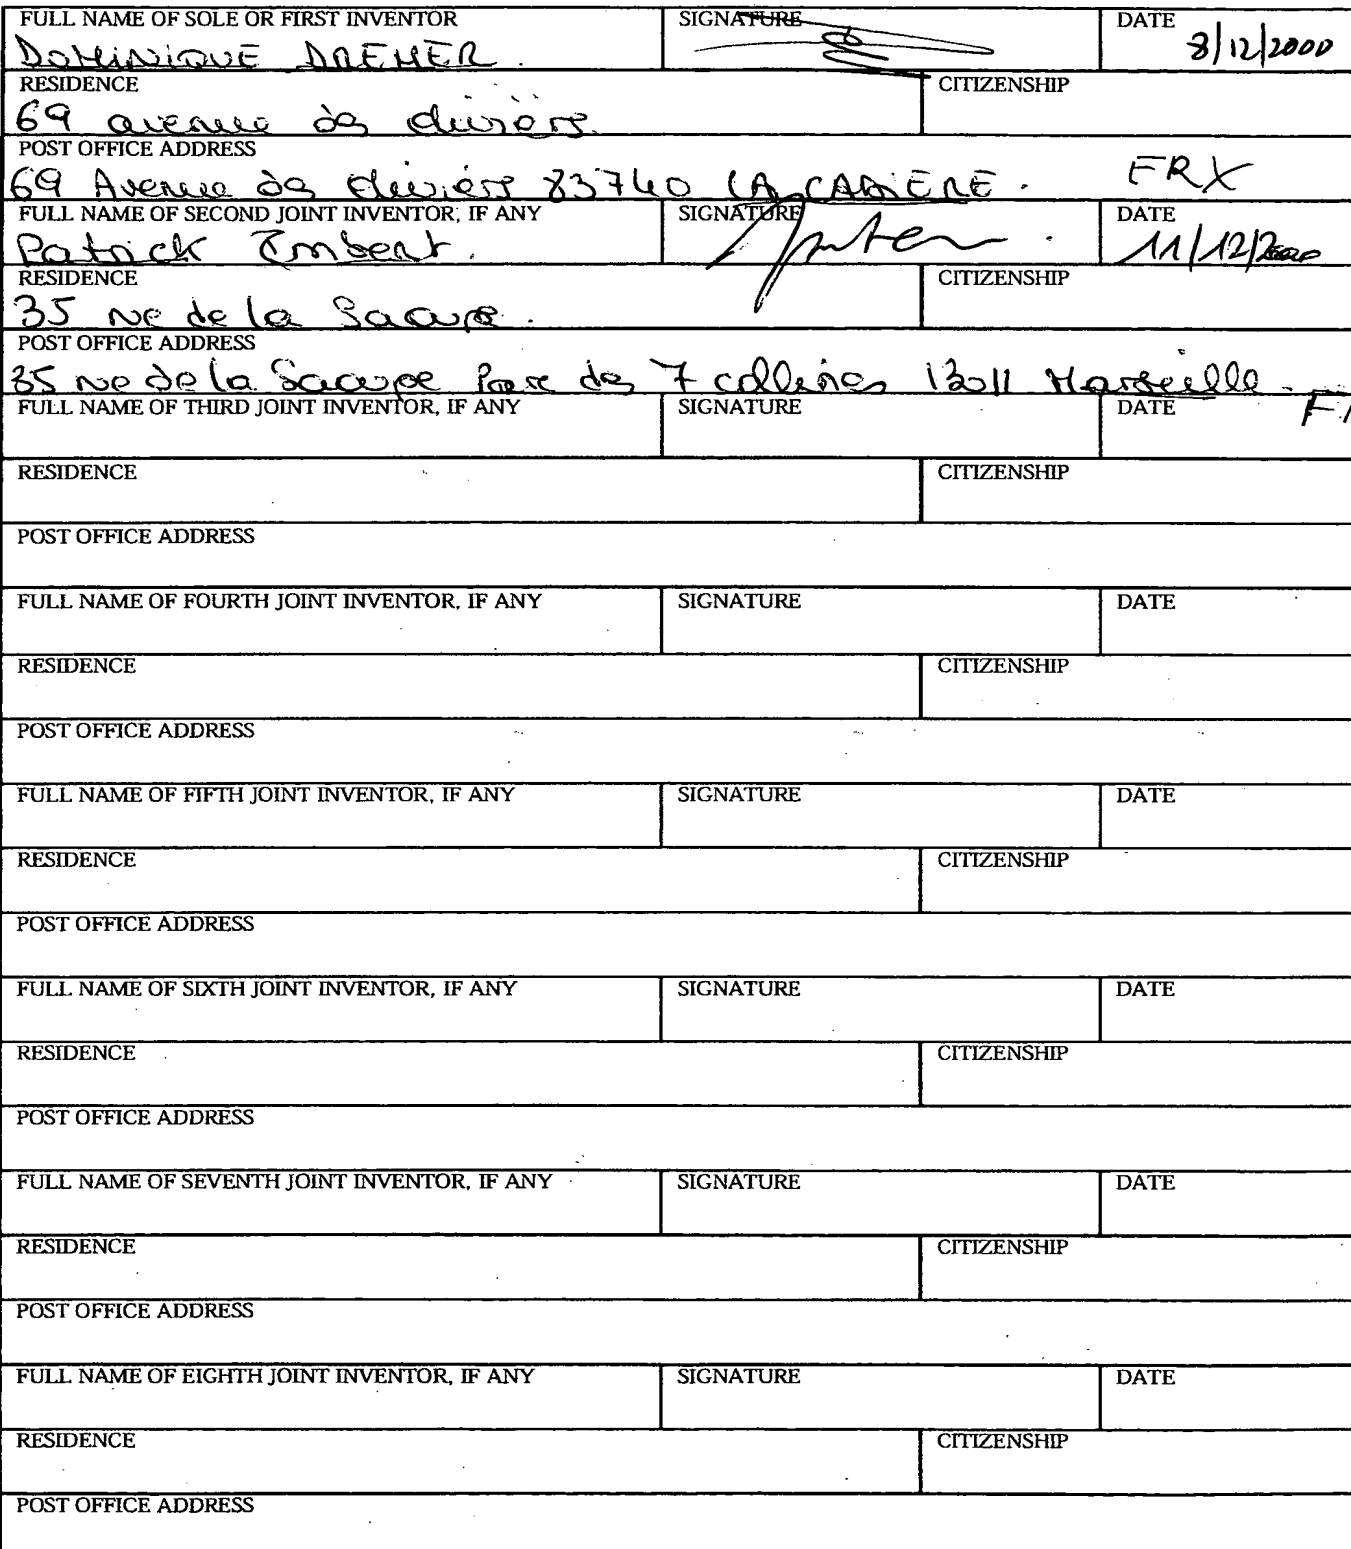 FULL NAME OF SOLE OR FIRST INVENTOR SIGNATURE DATE
DOMINIQUE DREMER. 8/12/2000
RESIDENCE CITIZENSHIP
69 avenue des
POST OFFICE ADDRESS
69 Avenue des 83740 LA CADIERE. FRX
FULL NAME OF SECOND JOINT INVENTOR, IF ANY SIGNATURE DATE
Patrick Imbert. 11/12/2000
RESIDENCE CITIZENSHIP
35 rue de la
POST OFFICE ADDRESS
35 rue de la Parc des 7 collines 13011 Marseille.
FULL NAME OF THIRD JOINT INVENTOR, IF ANY SIGNATURE DATE
RESIDENCE CITIZENSHIP
POST OFFICE ADDRESS
FULL NAME OF FOURTH JOINT INVENTOR, IF ANY SIGNATURE DATE
RESIDENCE CITIZENSHIP
POST OFFICE ADDRESS
FULL NAME OF FIFTH JOINT INVENTOR, IF ANY SIGNATURE DATE
RESIDENCE CITIZENSHIP
POST OFFICE ADDRESS
FULL NAME OF SIXTH JOINT INVENTOR, IF ANY SIGNATURE DATE
RESIDENCE CITIZENSHIP
POST OFFICE ADDRESS
FULL NAME OF SEVENTH JOINT INVENTOR, IF ANY SIGNATURE DATE
RESIDENCE CITIZENSHIP
POST OFFICE ADDRESS
FULL NAME OF EIGHTH JOINT INVENTOR, IF ANY SIGNATURE DATE
RESIDENCE CITIZENSHIP
POST OFFICE ADDRESS